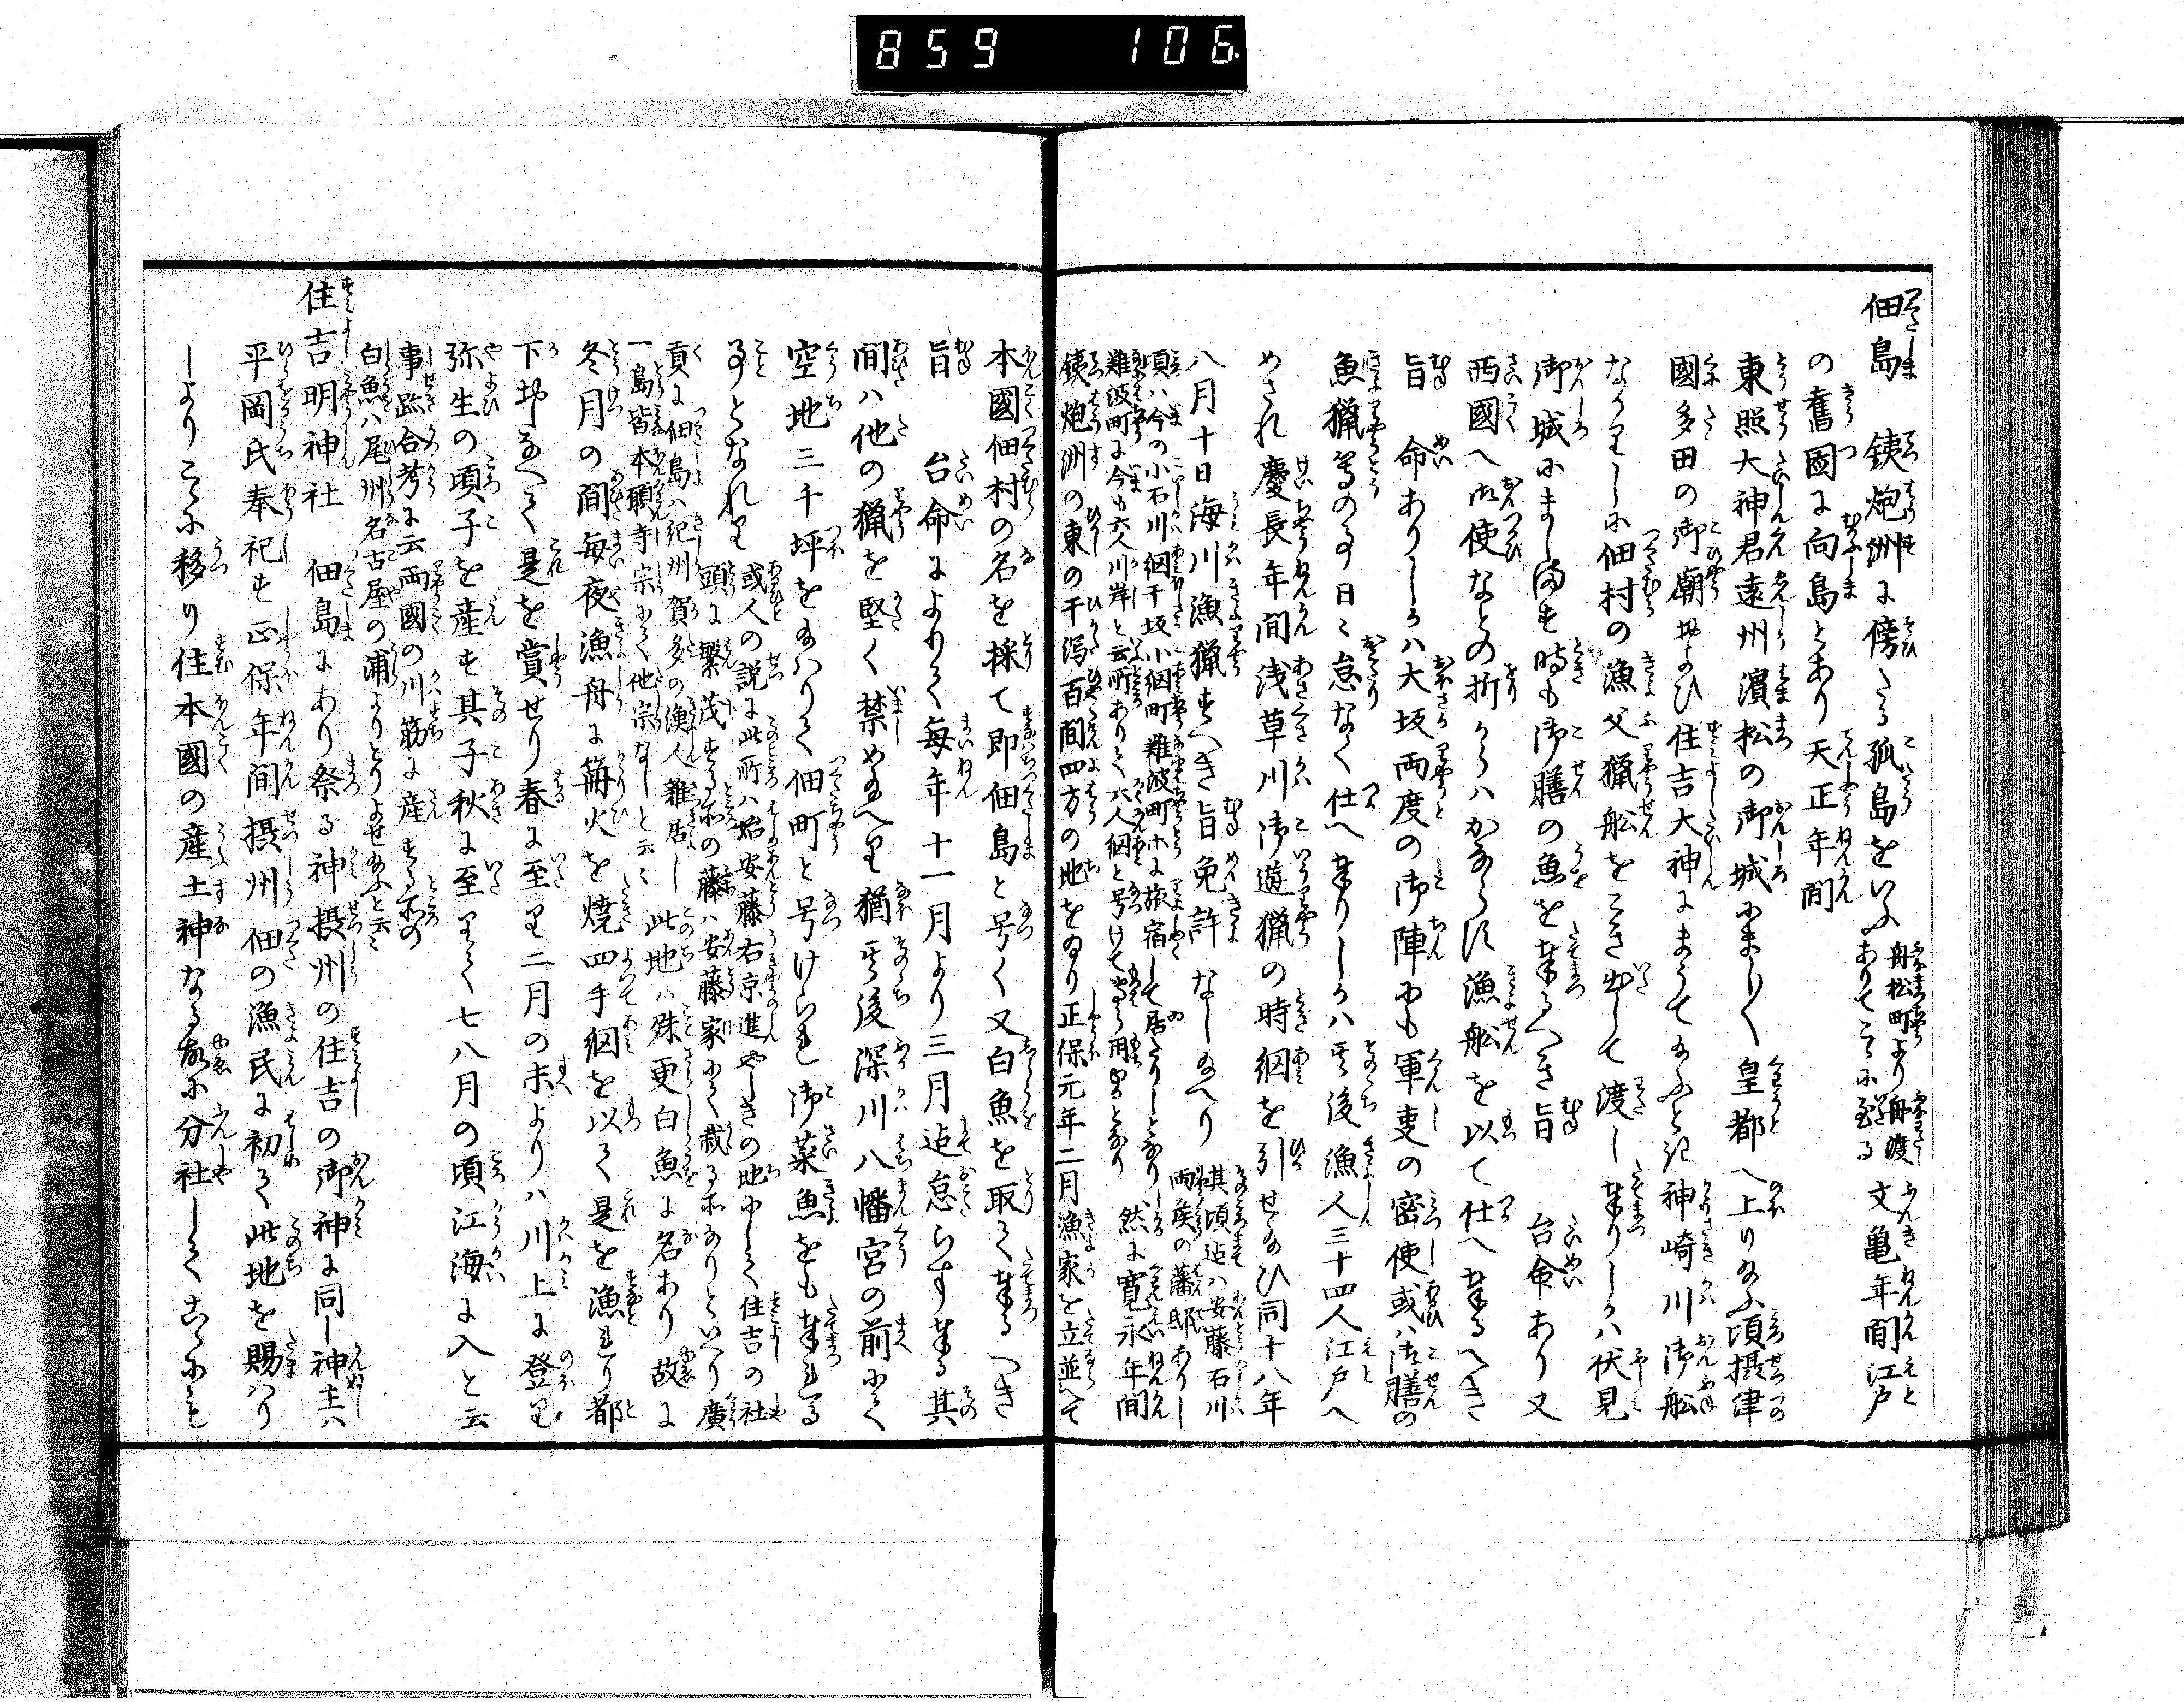 859 106.
佃島 鉄炮洲に傍たる孤島をいふ 舟松町より舟渡ありてこゝに至る 文亀年間江戸
の舊圖に向島とあり天正年間
東照大神君遠州濱松の御城にましく 皇都へ上り給ふ頃摂津
國多田の御廟および住吉大神にまうて給ふとき神崎川御船
なかりしに佃村の漁父猟船をこき出して渡し奉りしかハ伏見
御城にまします時も御膳の魚を奉るへき旨 台命あり又
西國へ御使なとの折からハかならす漁船を以て仕へ奉るへき
旨 命ありしかハ大坂両度の御陣にも軍事の密使或ハ御膳の
魚猟等の事日ミ怠なく仕へ奉りしかハ其後漁人三十四人江戸へ
めされ慶長年間浅草川御遊猟の時網を引せ給ひ同十八年
八月十日海川漁猟すへき旨免許なし給へり 其頃迄ハ安藤石川両侯の藩邸ありし
頃ハ今の小石川網干坂小網町難波町ホに旅宿して居たりしとなり
難波町に今も六人川岸と云所ありて六人網と号けて専ら用ゆるとなり 然に寛永年間
鉄炮洲の東の干潟百間四方の地を給り正保元年二月漁家を立並へて
本國佃村の名を採て即佃島と号く又白魚を取て奉るへき
旨 台命によりて毎年十一月より三月迄怠らす奉る其
間ハ他の猟を堅く禁め給へり猶其後深川八幡宮の前にて
空地三千坪を給ハりて佃町と号けられ御菜魚をも奉れる
事となれり 或人の説に此所ハ始安藤右京進やしきの地にして住吉の社
頭に繁茂する所の藤ハ安藤家にて栽る所なりといへり廣
貢に佃島ハ紀州賀多の漁人雑居し此地ハ殊更白魚に名あり故に
一島皆本願寺宗にて他宗なしと云ミ
冬月の間毎夜漁舟に篝火を焼四手網を以て是を漁れり都
下おしなへて是を賞せり春に至り二月の末よりハ川上に登り
弥生の頃子を産す其子秋に至りて七八月の頃江海に入と云
事跡合考に云両國の川筋に産する所の
白魚ハ尾州名古屋の浦よりとりよせ給ふと云ミ
住吉明神社 佃島にあり祭る神摂州の住吉の御神に同し神主ハ
平岡氏奉祀す正保年間摂州佃の漁民に初て此地を賜ハり
しよりこゝに移り住本國の産土神なる故に分社してこゝにも